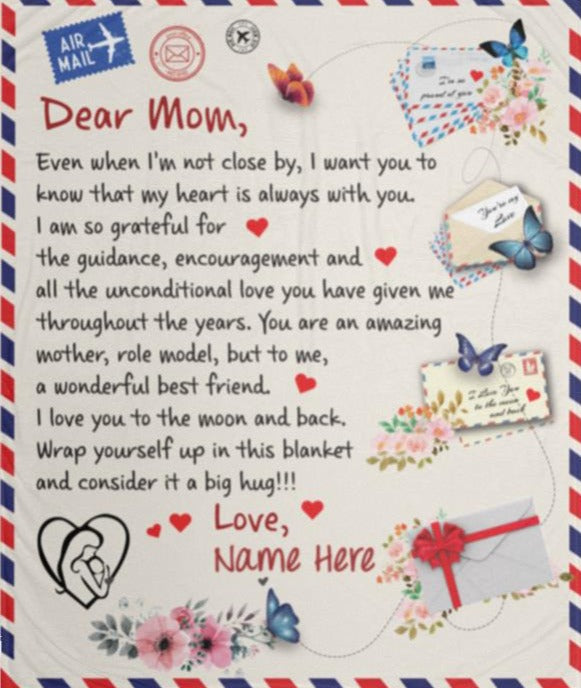 AIR
MAIL
Dear Mom,
Even when I'm not close by, I want you to
know that my heart is always with you.
I am so grateful for
the guidance, encouragement and
all the unconditional love you have given me
throughout the years. You are an amazing
mother, role model, but to me,
a wonderful best friend.
I love you to the moon and back.
Wrap yourself up in this blanket
and consider it a big hug!!!
Love,
Name Here
I'm so
proud of you
You're my
Love
I Love You
to the moon
and back